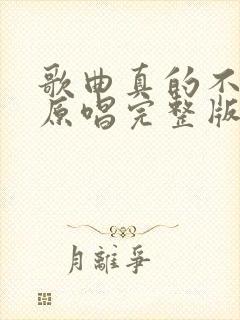 歌曲真的不
原唱完整版
月離爭